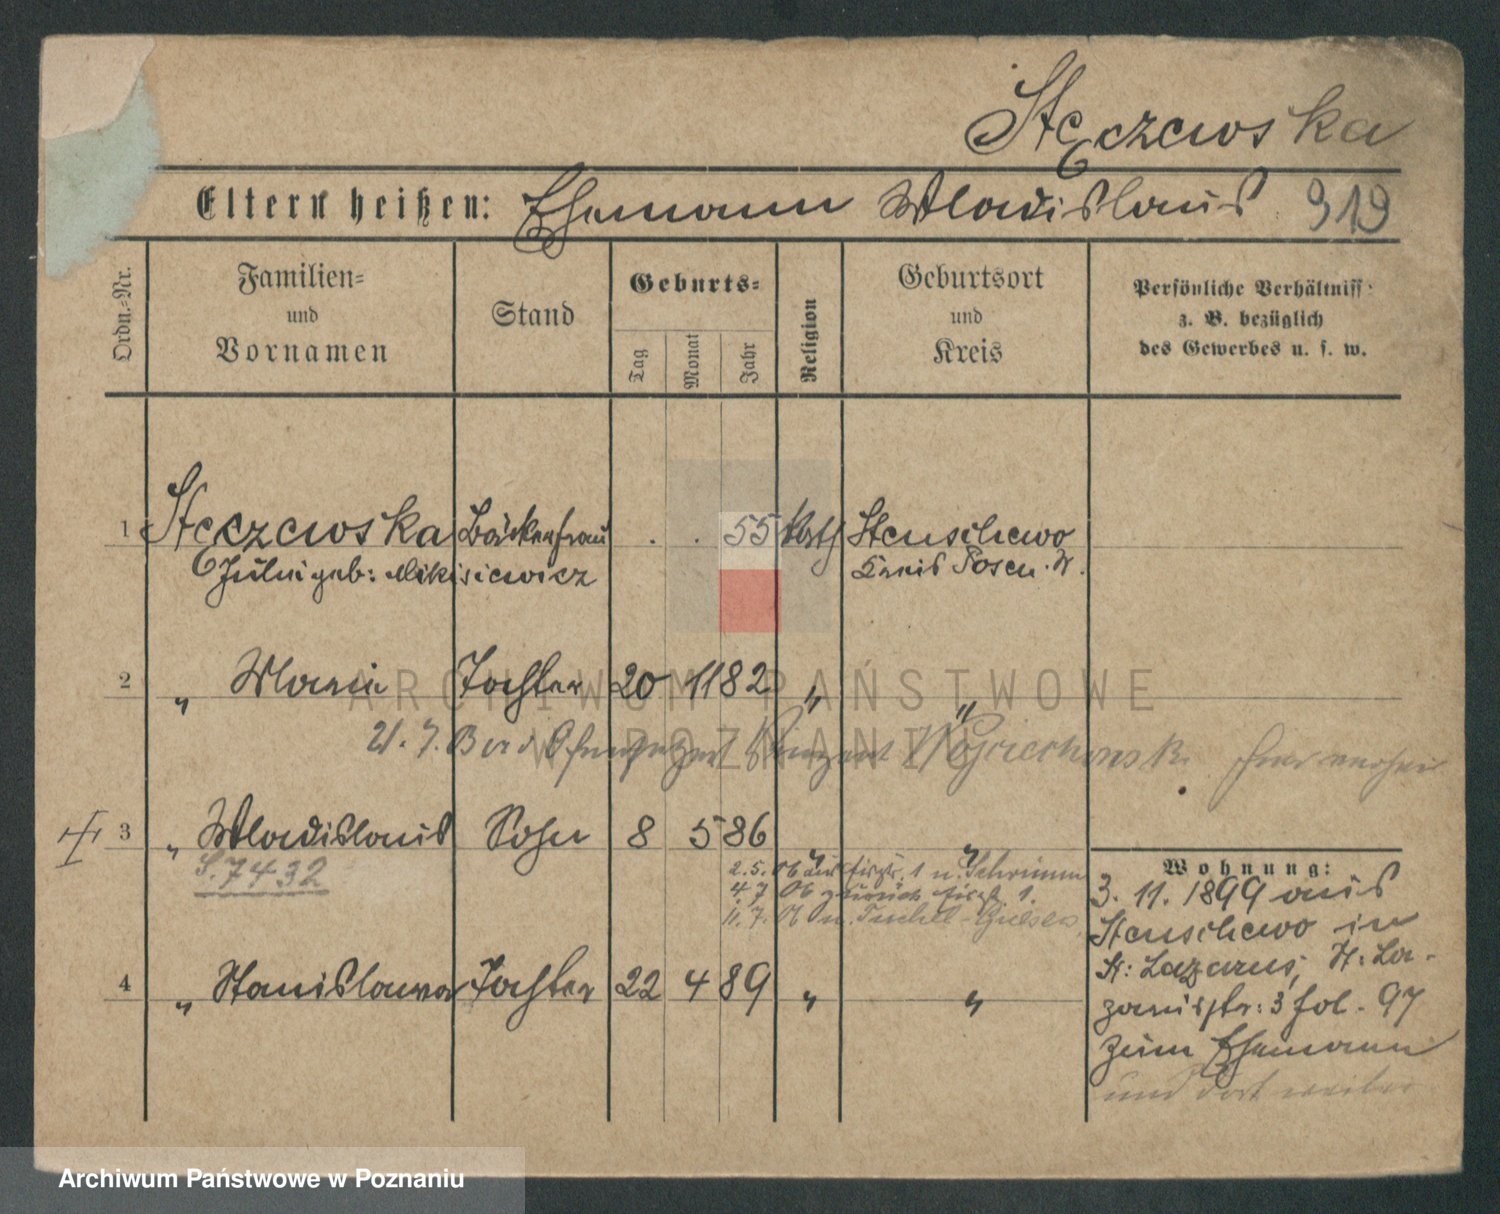 Stęczewska
Eltern heißen: Ehemann Wladislaus 919
Ordn.-Nr.
Familien- und Vornamen
Stand
Geburts-
Tag
Monat
Jahr
Religion
Geburtsort und Kreis
Persönliche Verhältniss
z. B. bezüglich
des Gewerbes u. s. w.
1 Stęczewska Bäckerfrau . . 55 kath Stenschewo
Julie geb: Mikisiewicz Kreis Posen. W.
2 " Marie Tochter 20 11 82 " "
21. 7. Wojciechowsk
3 " Wladislaus Sohn 8 5 86 " "
S. 7432
2. 5. 06 aus 1 n. Schrimm
4. 7 06 zurück 1.
11. 7. 06 n. Tuchel
4 " Stanislawa Tochter 22 4 89 " "
Wohnung:
3. 11. 1899 aus
Stenschewo in
St: Lazarus, St: La-
zarusstr: 3 fol. 97
zum Ehemann
und dort weiter
ARCHIWUM PAŃSTWOWE
W POZNANIU
Archiwum Państwowe w Poznaniu